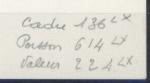 Cadre 136 LX
Poisson 614 LX
Valeur 224 LX